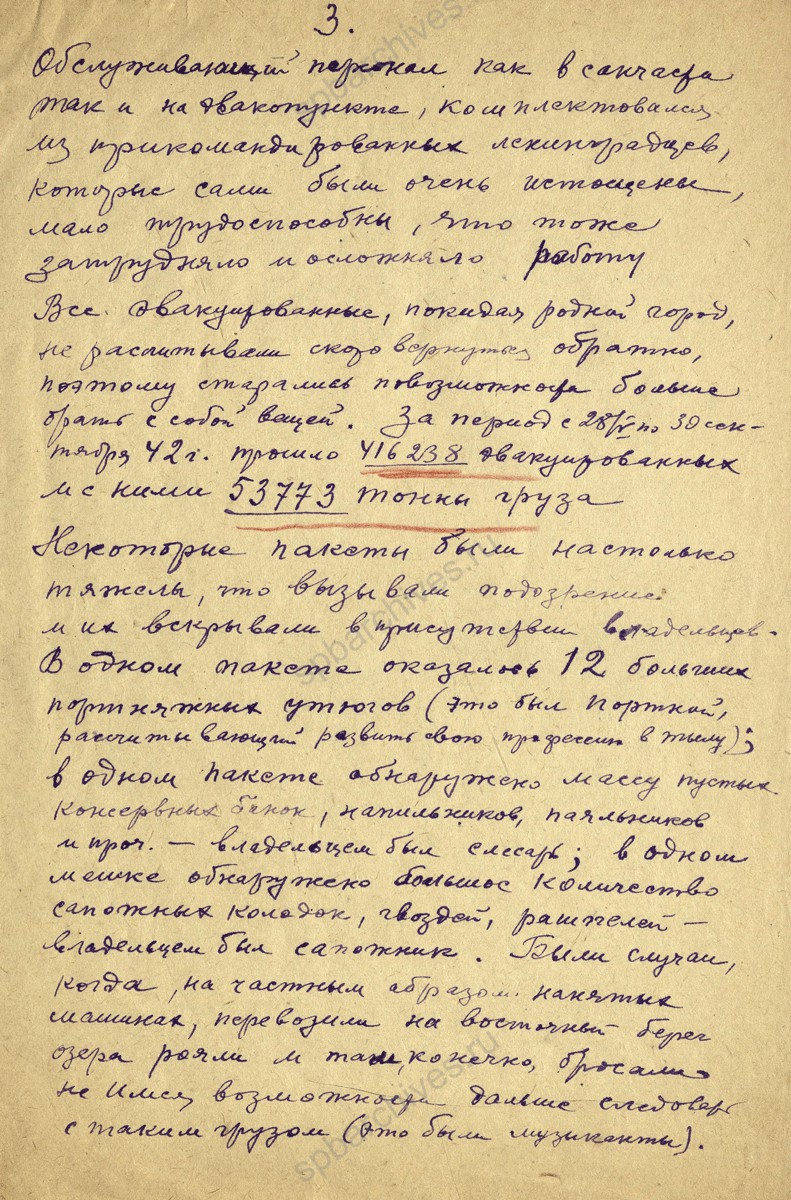 3.
Обслуживающий персонал как в санчасти
так и на эвакопункте, комплектовался
из прикомандированных ленинградцев,
которые сами были очень истощены,
мало трудоспособны, что тоже
затрудняло и осложняло работу
Все эвакуированные, покидая родной город,
не расчитывали скоро вернуться обратно,
поэтому старались повозможности больше
брать с собой вещей. За период с 28/V по 30 сен-
тября 42 г. прошло 416238 эвакуированных
и с ними 53773 тонны груза
Некоторые пакеты были настолько
тяжелы, что вызывали подозрение
и их вскрывали в присутствии владельцев.
В одном пакете оказалось 12 больших
портняжных утюгов (это был портной,
рассчитывающий развить свою профессию в тылу);
в одном пакете обнаружено массу пустых
консервных банок, напильников, паяльников
и проч. – владельцем был слесарь; в одном
мешке обнаружено большое количество
сапожных колодок, гвоздей, рашпелей –
владельцем был сапожник. Были случаи,
когда, на частным образом нанятых
машинах, перевозили на восточный берег
озера рояли и там, конечно, бросали
не имея возможности дальше следовать
с таким грузом (это были музыканты).
spbarchives.ru
spbarchives.ru
spbarchives.ru